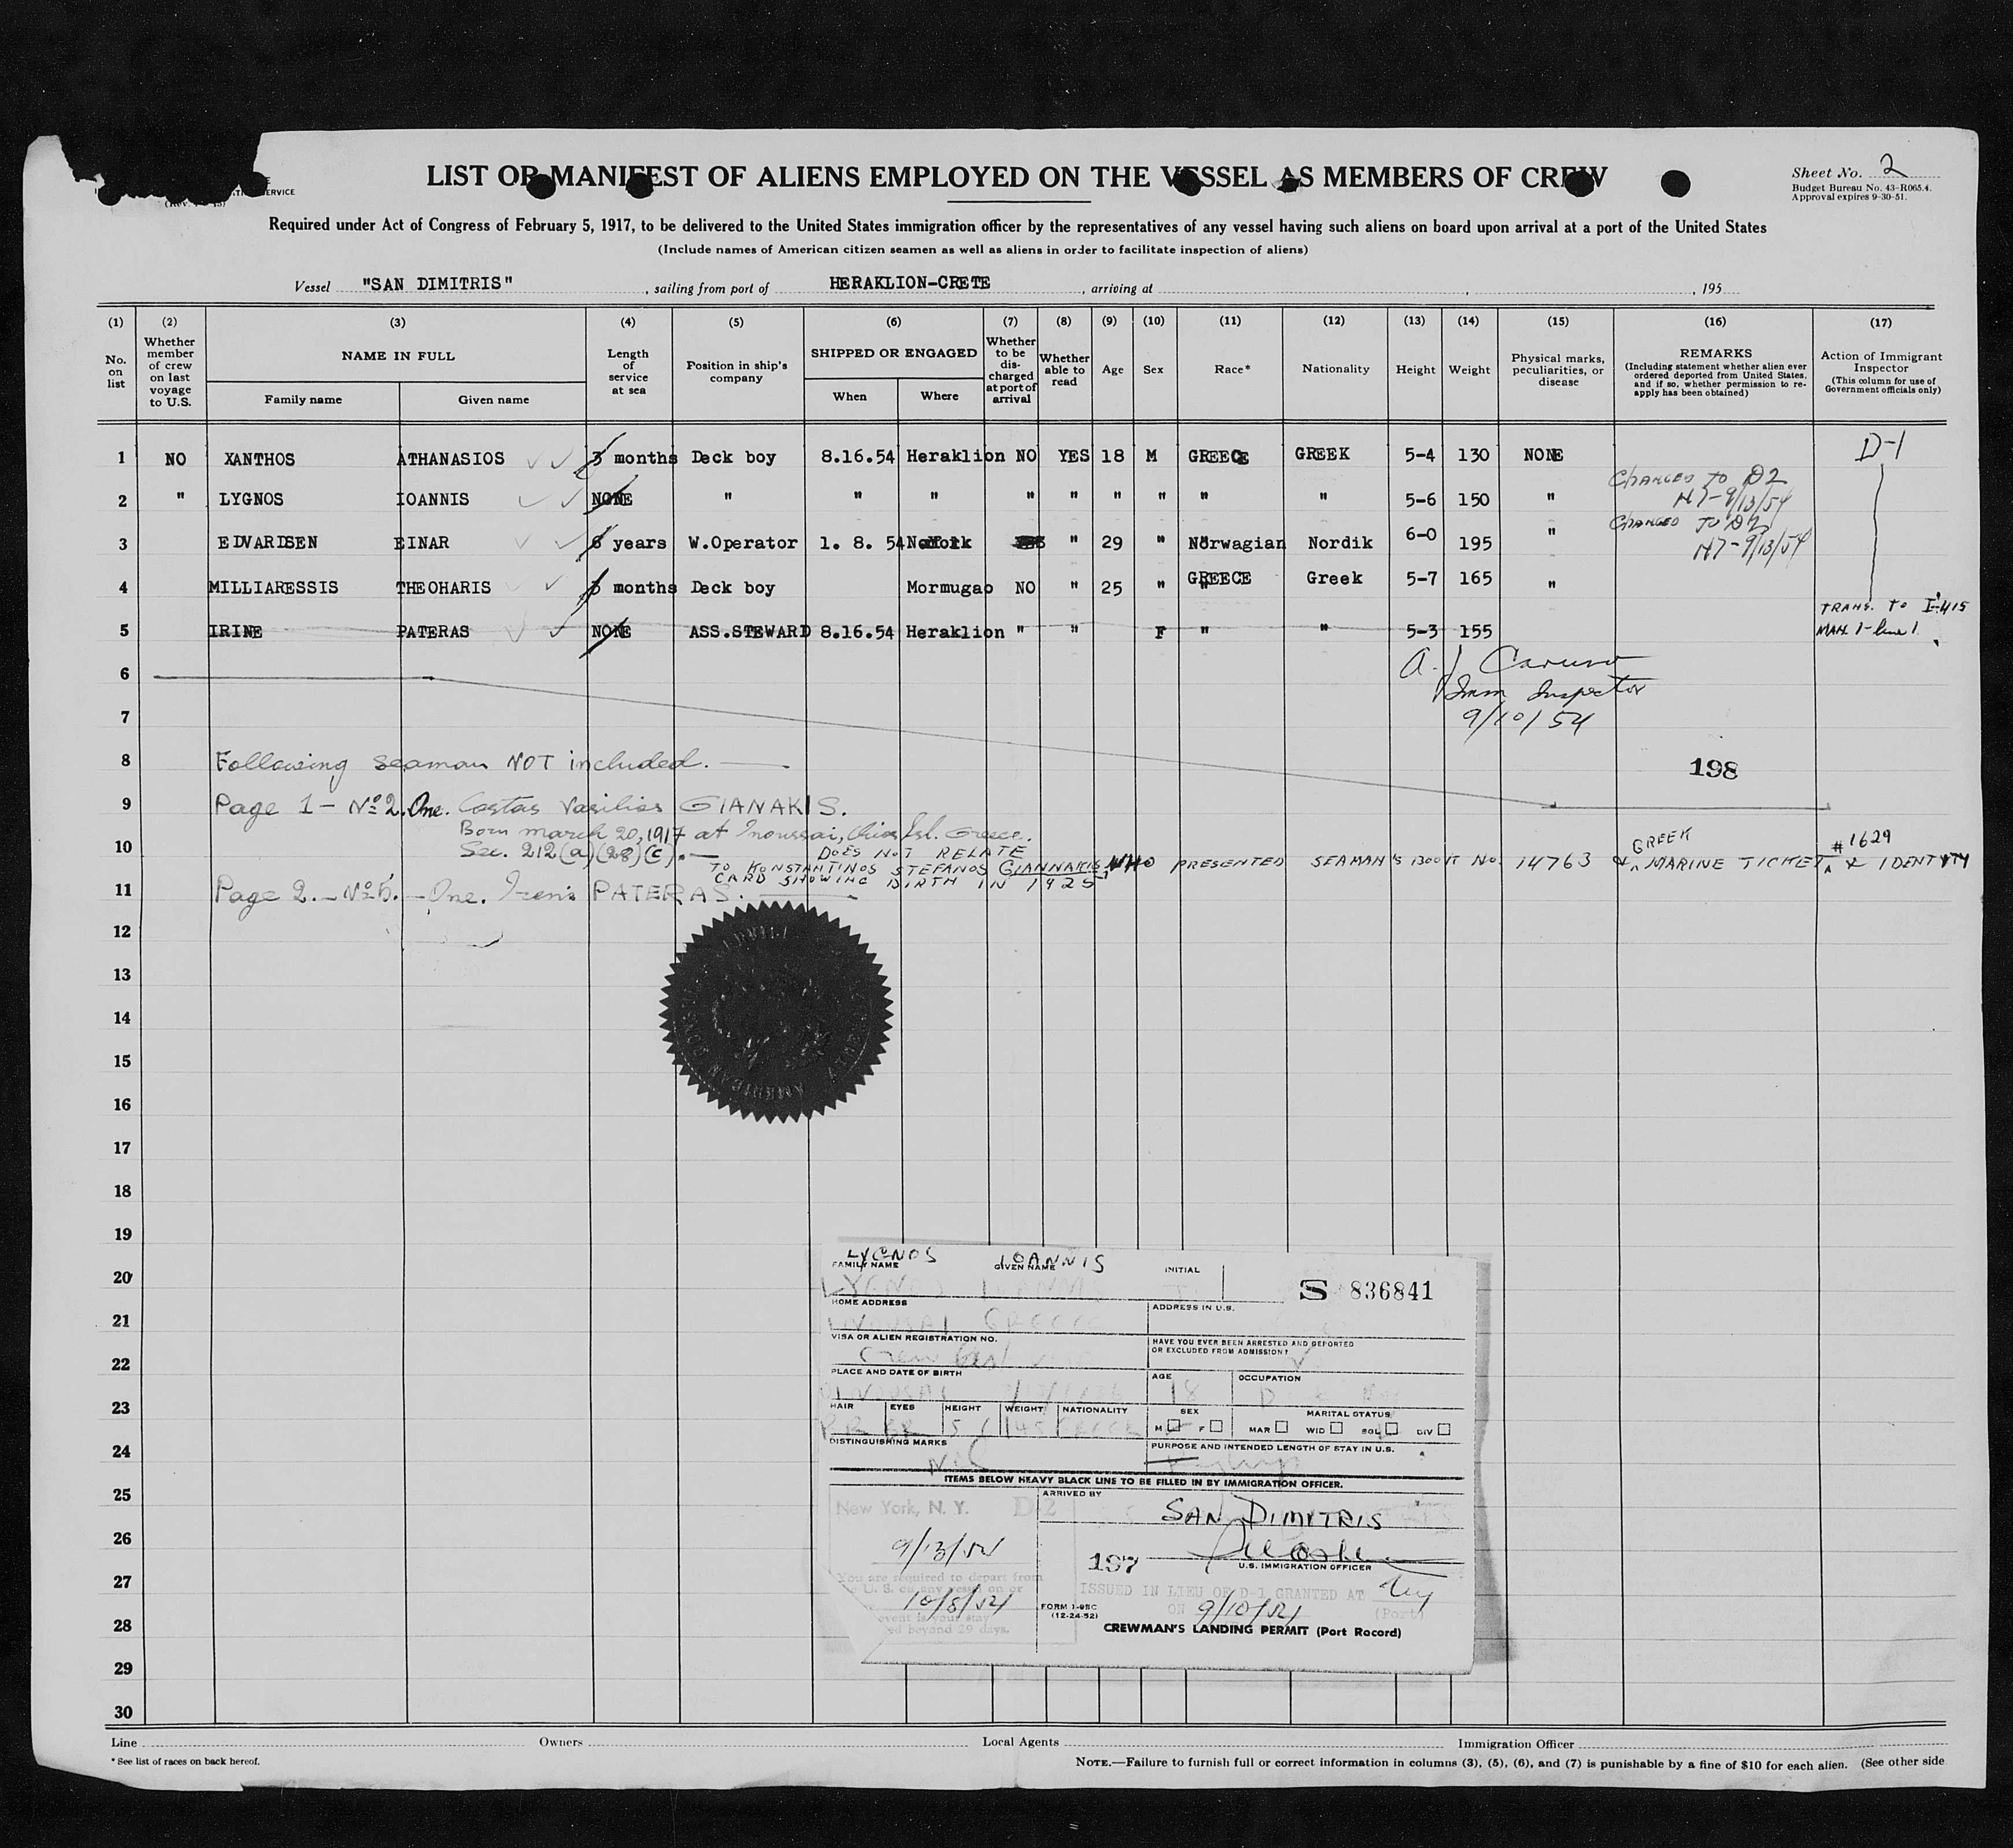 LIST OR MANIFEST OF ALIENS EMPLOYED ON THE VESSEL AS MEMBERS OF CREW
Sheet No. 2
Budget Bureau No. 43-R065.4.
Approval expires 9-30-51.
SERVICE
Required under Act of Congress of February 5, 1917, to be delivered to the United States immigration officer by the representatives of any vessel having such aliens on board upon arrival at a port of the United States
(Include names of American citizen seamen as well as aliens in order to facilitate inspection of aliens)
Vessel "SAN DIMITRIS", sailing from port of HERAKLION-CRETE, arriving at , , 195
(1) (2) (3) (4) (5) (6) (7) (8) (9) (10) (11) (12) (13) (14) (15) (16) (17)
No. on list
Whether member of crew on last voyage to U.S.
NAME IN FULL
Family name
Given name
Length of service at sea
Position in ship's company
SHIPPED OR ENGAGED
When
Where
Whether to be discharged at port of arrival
Whether able to read
Age
Sex
Race*
Nationality
Height
Weight
Physical marks, peculiarities, or disease
REMARKS
(Including statement whether alien ever ordered deported from United States, and if so, whether permission to re-apply has been obtained)
Action of Immigrant Inspector
(This column for use of Government officials only)
1 NO XANTHOS ATHANASIOS 3 months Deck boy 8.16.54 Heraklion NO YES 18 M GREECE GREEK 5-4 130 NONE D-1
2 " LYGNOS IOANNIS NONE " " " " " " " " " 5-6 150 " CHANGED TO D2
NY-9/13/54
3 EDVARDSEN EINAR 6 years W.Operator 1. 8. 54 " 29 " Norwegian Nordik 6-0 195 " CHANGED TO D2
NY-9/13/54
4 MILLIARESSIS THEOHARIS 3 months Deck boy Mormugao NO " 25 " GREECE Greek 5-7 165 "
TRANS. TO I-415
5 IRINE PATERAS NONE ASS.STEWARD 8.16.54 Heraklion " " F " " 5-3 155 MAN. 1-line 1
6
A. J. Caruso
Imm Inspector
7
9/10/54
8 Following seaman NOT included.
198
9 Page 1- No 2. One. Costas Vasilios GIANAKIS.
Born march 20, 1917 at Inoussai, Chios Isl. Greece.
10 Sec. 212(a)(28)(c).- DOES NOT RELATE
TO KONSTANTINOS STEFANOS GIANNAKIS, WHO PRESENTED SEAMAN'S BOOK NO. 14763 & GREEK MARINE TICKET #1629 & IDENTITY
CARD SHOWING BIRTH IN 1925
11 Page 2.- No 5. -One. Irenis PATERAS.
12
13
14
15
16
17
18
19
20
21
22
23
24
25
26
27
28
29
30
AMERICAN
LYGNOS IOANNIS
FAMILY NAME GIVEN NAME INITIAL
LYGNOS IOANNIS
S 836841
HOME ADDRESS ADDRESS IN U.S.
GREECE
VISA OR ALIEN REGISTRATION NO.
HAVE YOU EVER BEEN ARRESTED AND DEPORTED OR EXCLUDED FROM ADMISSION?
Crew list
PLACE AND DATE OF BIRTH AGE OCCUPATION
18
HAIR EYES HEIGHT WEIGHT NATIONALITY SEX MARITAL STATUS
M F MAR WID SGL DIV
DISTINGUISHING MARKS PURPOSE AND INTENDED LENGTH OF STAY IN U.S.
ITEMS BELOW HEAVY BLACK LINE TO BE FILLED IN BY IMMIGRATION OFFICER.
New York, N. Y. D-2
ARRIVED BY
SAN DIMITRIS
9/13/54
197
U.S. IMMIGRATION OFFICER
You are required to depart from
U. S. on any vessel on or
10/8/54
event is your stay
ed beyond 29 days.
ISSUED IN LIEU OF D-1 GRANTED AT NY
ON 9/10/54 (Port)
FORM I-95C
(12-24-52)
CREWMAN'S LANDING PERMIT (Port Record)
Line Owners Local Agents Immigration Officer
* See list of races on back hereof.
NOTE.—Failure to furnish full or correct information in columns (3), (5), (6), and (7) is punishable by a fine of $10 for each alien. (See other side